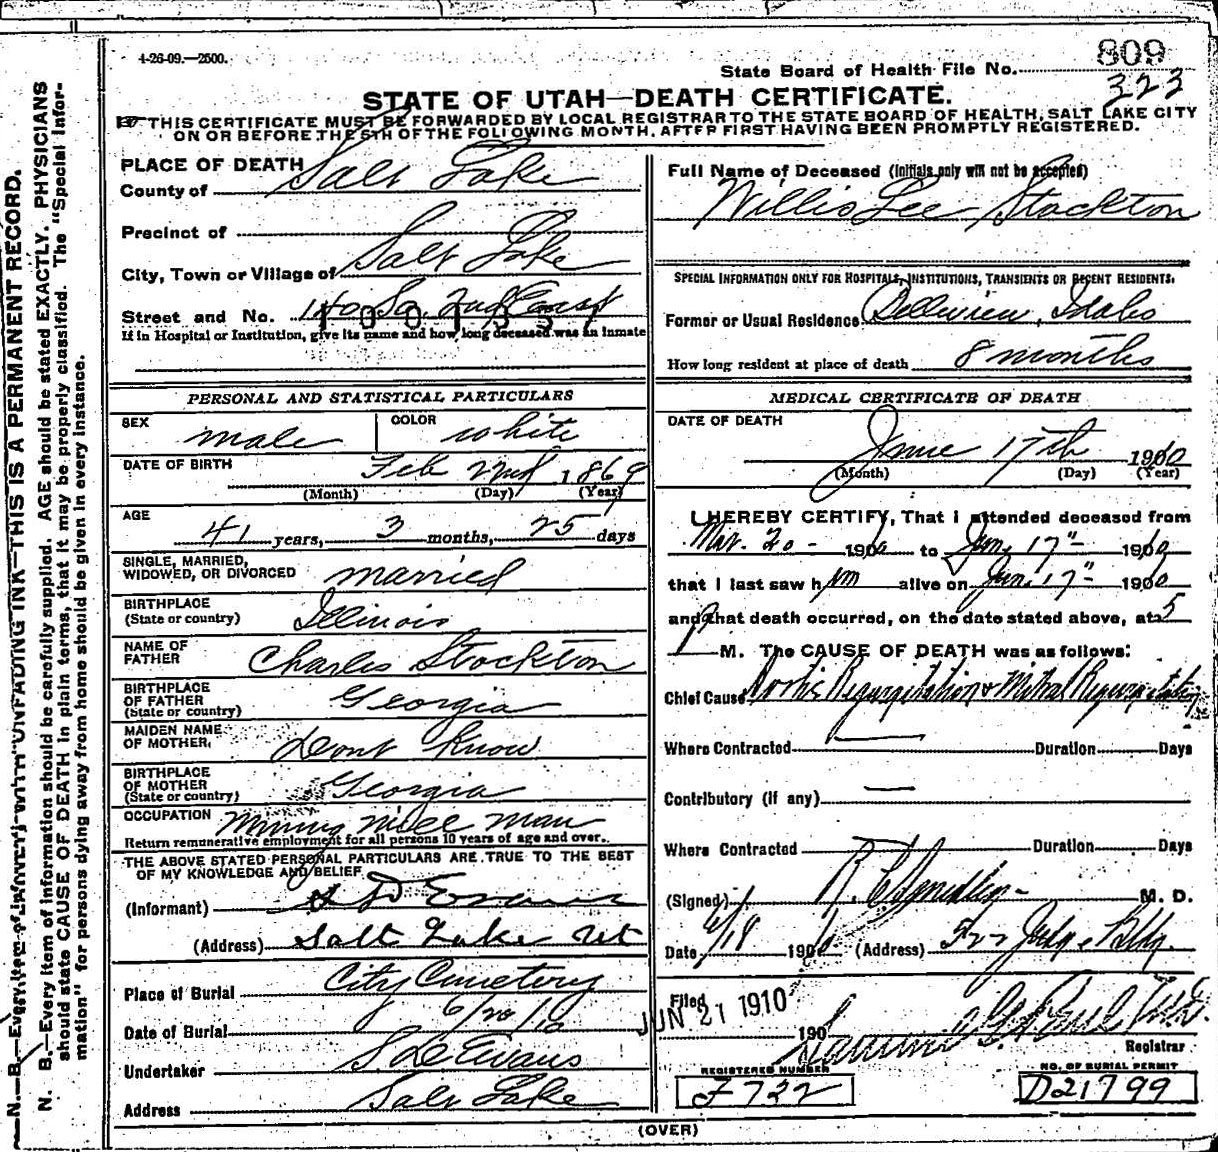 4-26-09.—2500.
809
State Board of Health File No.
323
STATE OF UTAH—DEATH CERTIFICATE.
THIS CERTIFICATE MUST BE FORWARDED BY LOCAL REGISTRAR TO THE STATE BOARD OF HEALTH, SALT LAKE CITY
ON OR BEFORE THE 5TH OF THE FOLLOWING MONTH, AFTER FIRST HAVING BEEN PROMPTLY REGISTERED.
PLACE OF DEATH
County of Salt Lake
Precinct of
City, Town or Village of Salt Lake
Street and No. 140 So. 2nd East
If in Hospital or Institution, give its name and how long deceased was an inmate
Full Name of Deceased (Initials only will not be accepted)
Willis Lee Stockton
SPECIAL INFORMATION ONLY FOR HOSPITALS, INSTITUTIONS, TRANSIENTS OR RECENT RESIDENTS.
Former or Usual Residence Bellview, Idaho
How long resident at place of death 8 months
PERSONAL AND STATISTICAL PARTICULARS
SEX male COLOR white
DATE OF BIRTH Feb 22nd 1869
(Month) (Day) (Year)
AGE 41 years, 3 months, 25 days
SINGLE, MARRIED,
WIDOWED, OR DIVORCED married
BIRTHPLACE
(State or country) Illinois
NAME OF
FATHER Charles Stockton
BIRTHPLACE
OF FATHER
(State or country) Georgia
MAIDEN NAME
OF MOTHER. dont know
BIRTHPLACE
OF MOTHER
(State or country) Georgia
OCCUPATION Mining mill man
Return remunerative employment for all persons 10 years of age and over.
THE ABOVE STATED PERSONAL PARTICULARS ARE TRUE TO THE BEST
OF MY KNOWLEDGE AND BELIEF
(Informant) S D Evans
(Address) Salt Lake Ut
Place of Burial City Cemetery
Date of Burial 6/20/10
Undertaker S. D. Evans
Address Salt Lake
MEDICAL CERTIFICATE OF DEATH
DATE OF DEATH
June 17th 1910
(Month) (Day) (Year)
I HEREBY CERTIFY, That I attended deceased from
Mar. 20 - 1910 to June 17" 1910
that I last saw him alive on June 17" 1910
and that death occurred, on the date stated above, at 5
P M. The CAUSE OF DEATH was as follows:
Chief Cause Aortic Regurgitation & Mitral Regurgitation
Where Contracted Duration Days
Contributory (if any)
Where Contracted Duration Days
(Signed) M. D.
Date 6/18 190 (Address) Judge Bldg.
Filed
JUN 21 1910
190
Registrar
REGISTERED NUMBER
F732
NO. OF BURIAL PERMIT
D21799
(OVER)
N. B.—Every item of information should be carefully supplied. AGE should be stated EXACTLY. PHYSICIANS
should state CAUSE OF DEATH in plain terms, that it may be properly classified. The "Special Infor-
mation" for persons dying away from home should be given in every instance.